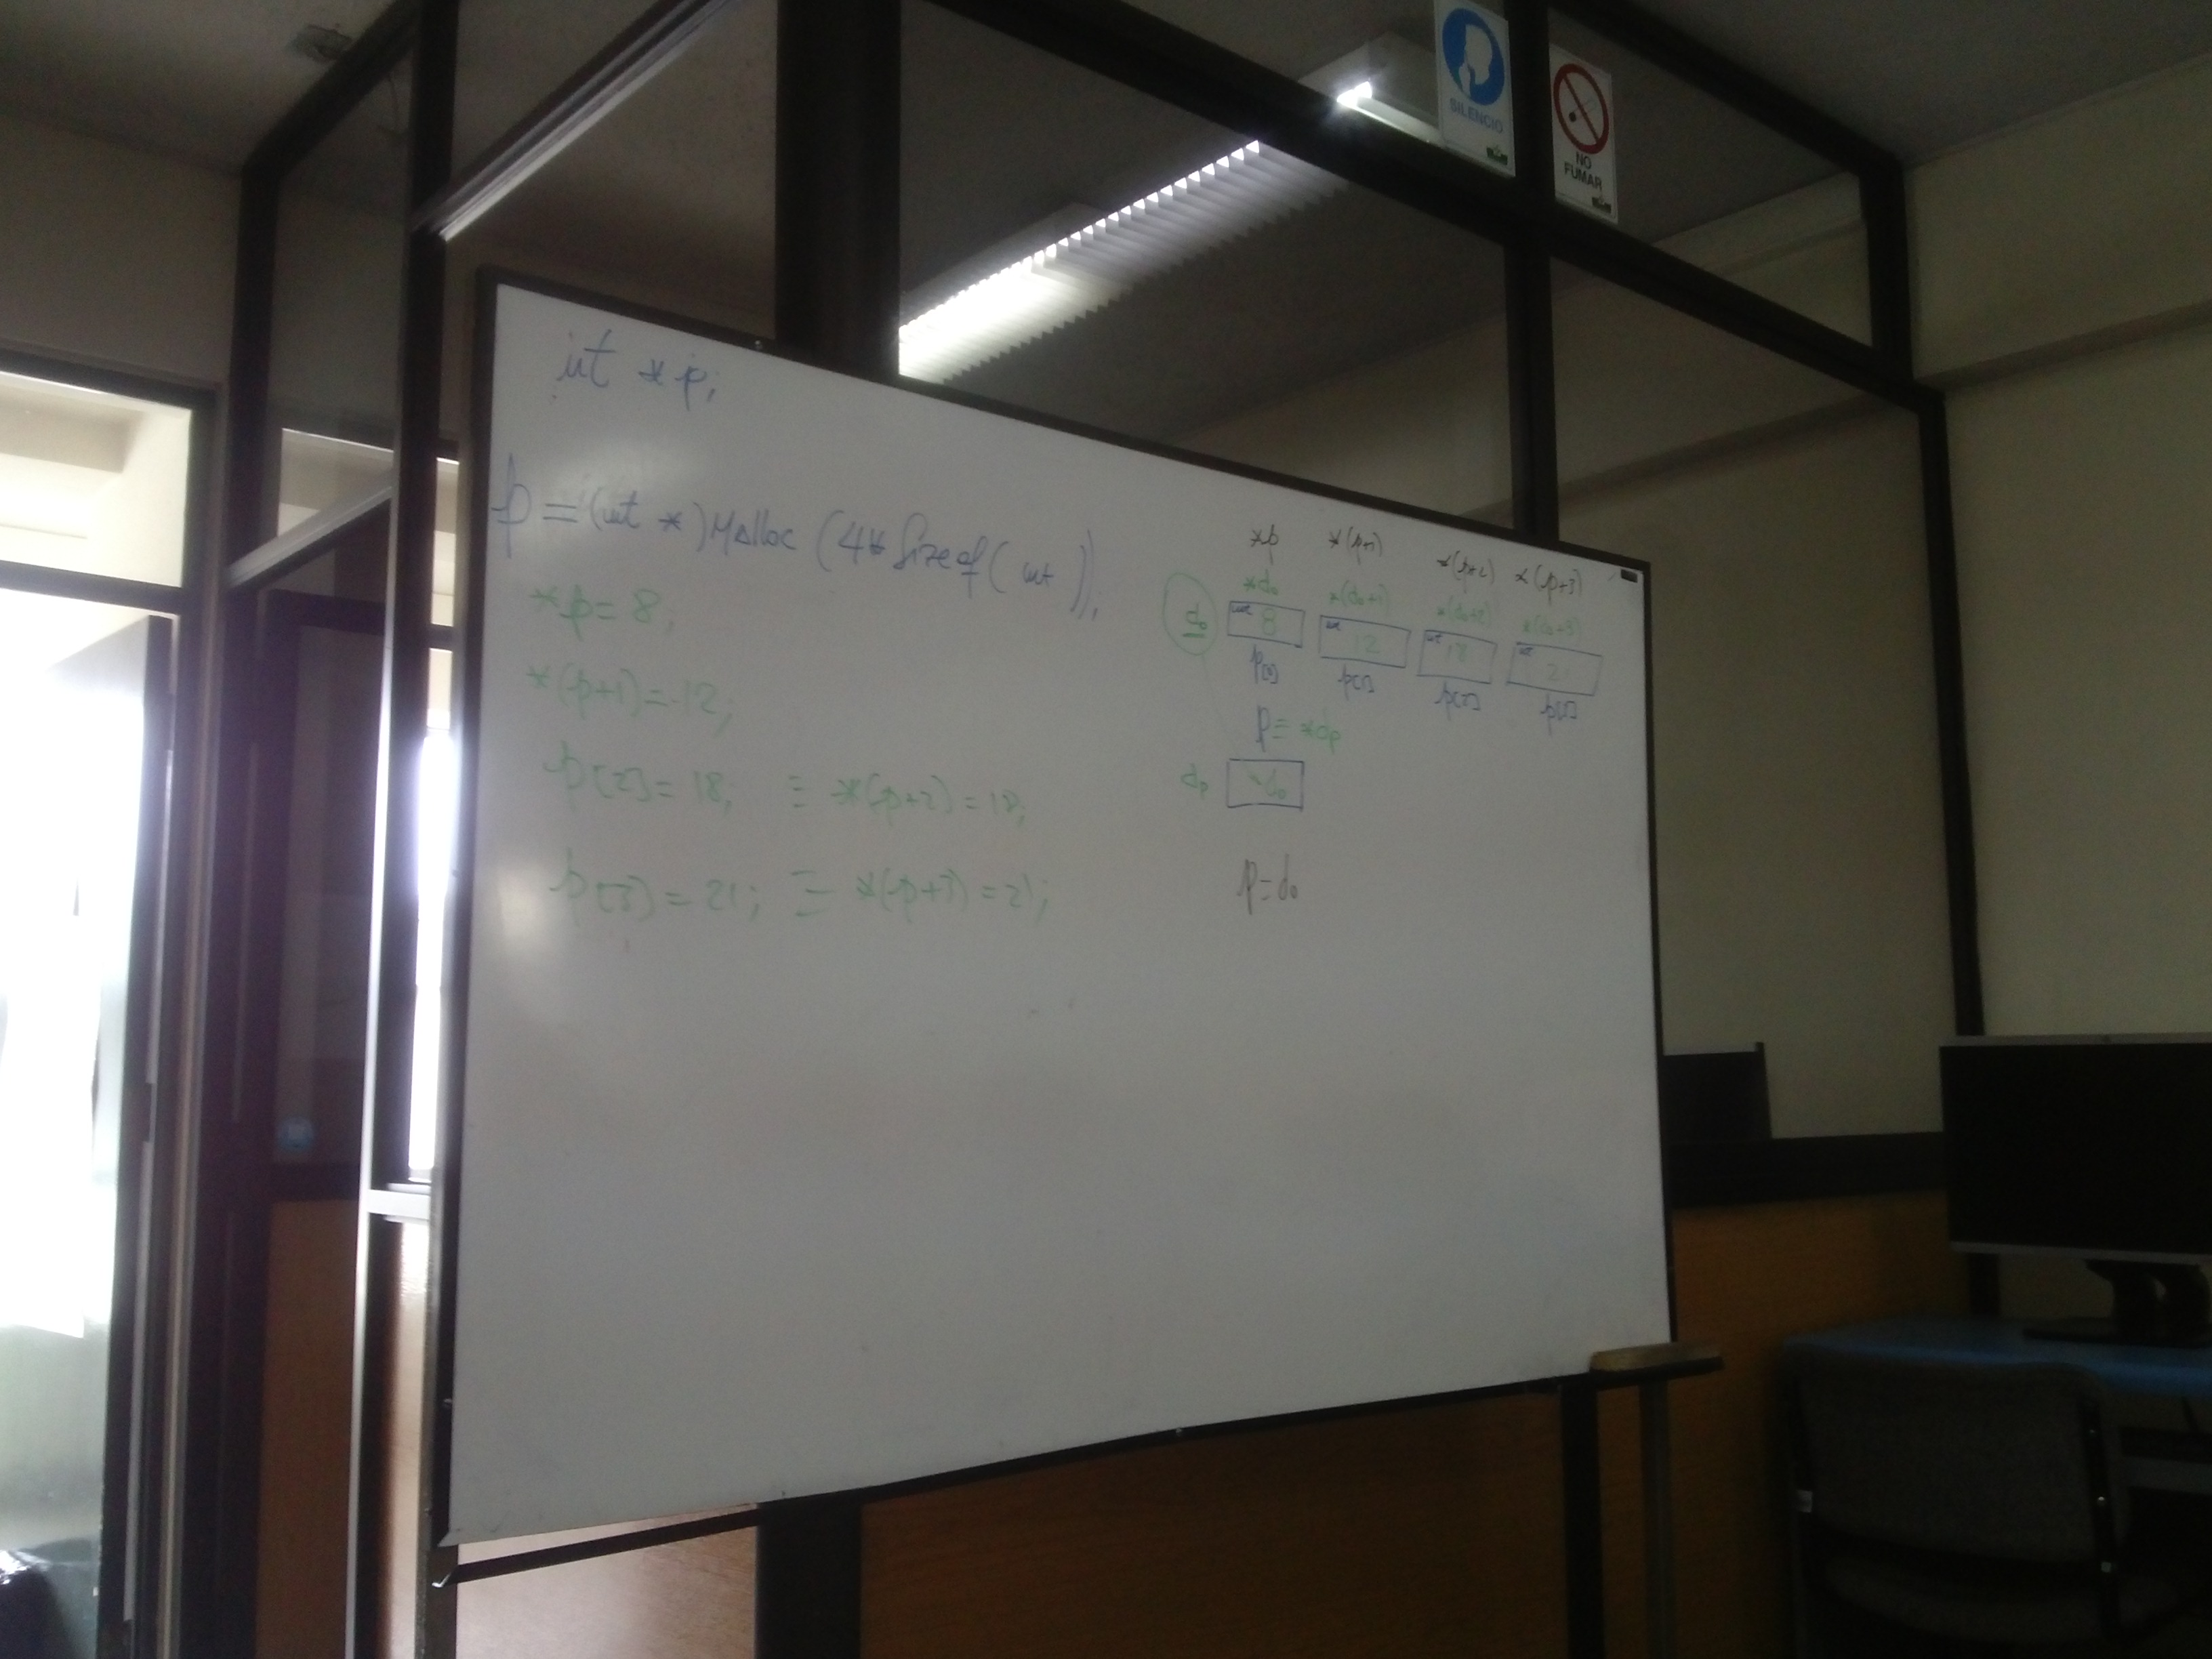 SILENCIO
NO
FUMAR
int *p;
p = (int *) Malloc (4 * Sizeof ( int ));
*p = 8;
*(p+1) = 12;
p[2] = 18; ≡ *(p+2) = 18;
p[3] = 21; ≡ *(p+3) = 21;
*p *(p+1) *(p+2) *(p+3)
*do *(do+1) *(do+2) *(do+3)
do int 8 int 12 int 18 int 21
p[0] p[1] p[2] p[3]
p = *dp
dp do
p = do